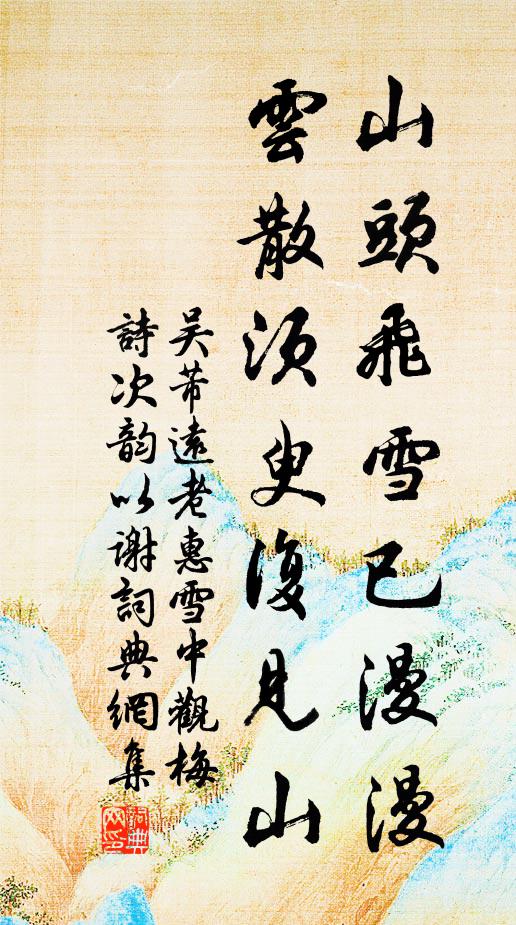 山頭飛雪已漫漫
雲散須臾復見山
吳芾遠老惠雪中觀梅
詩次韵以谢詞典網集
詞典